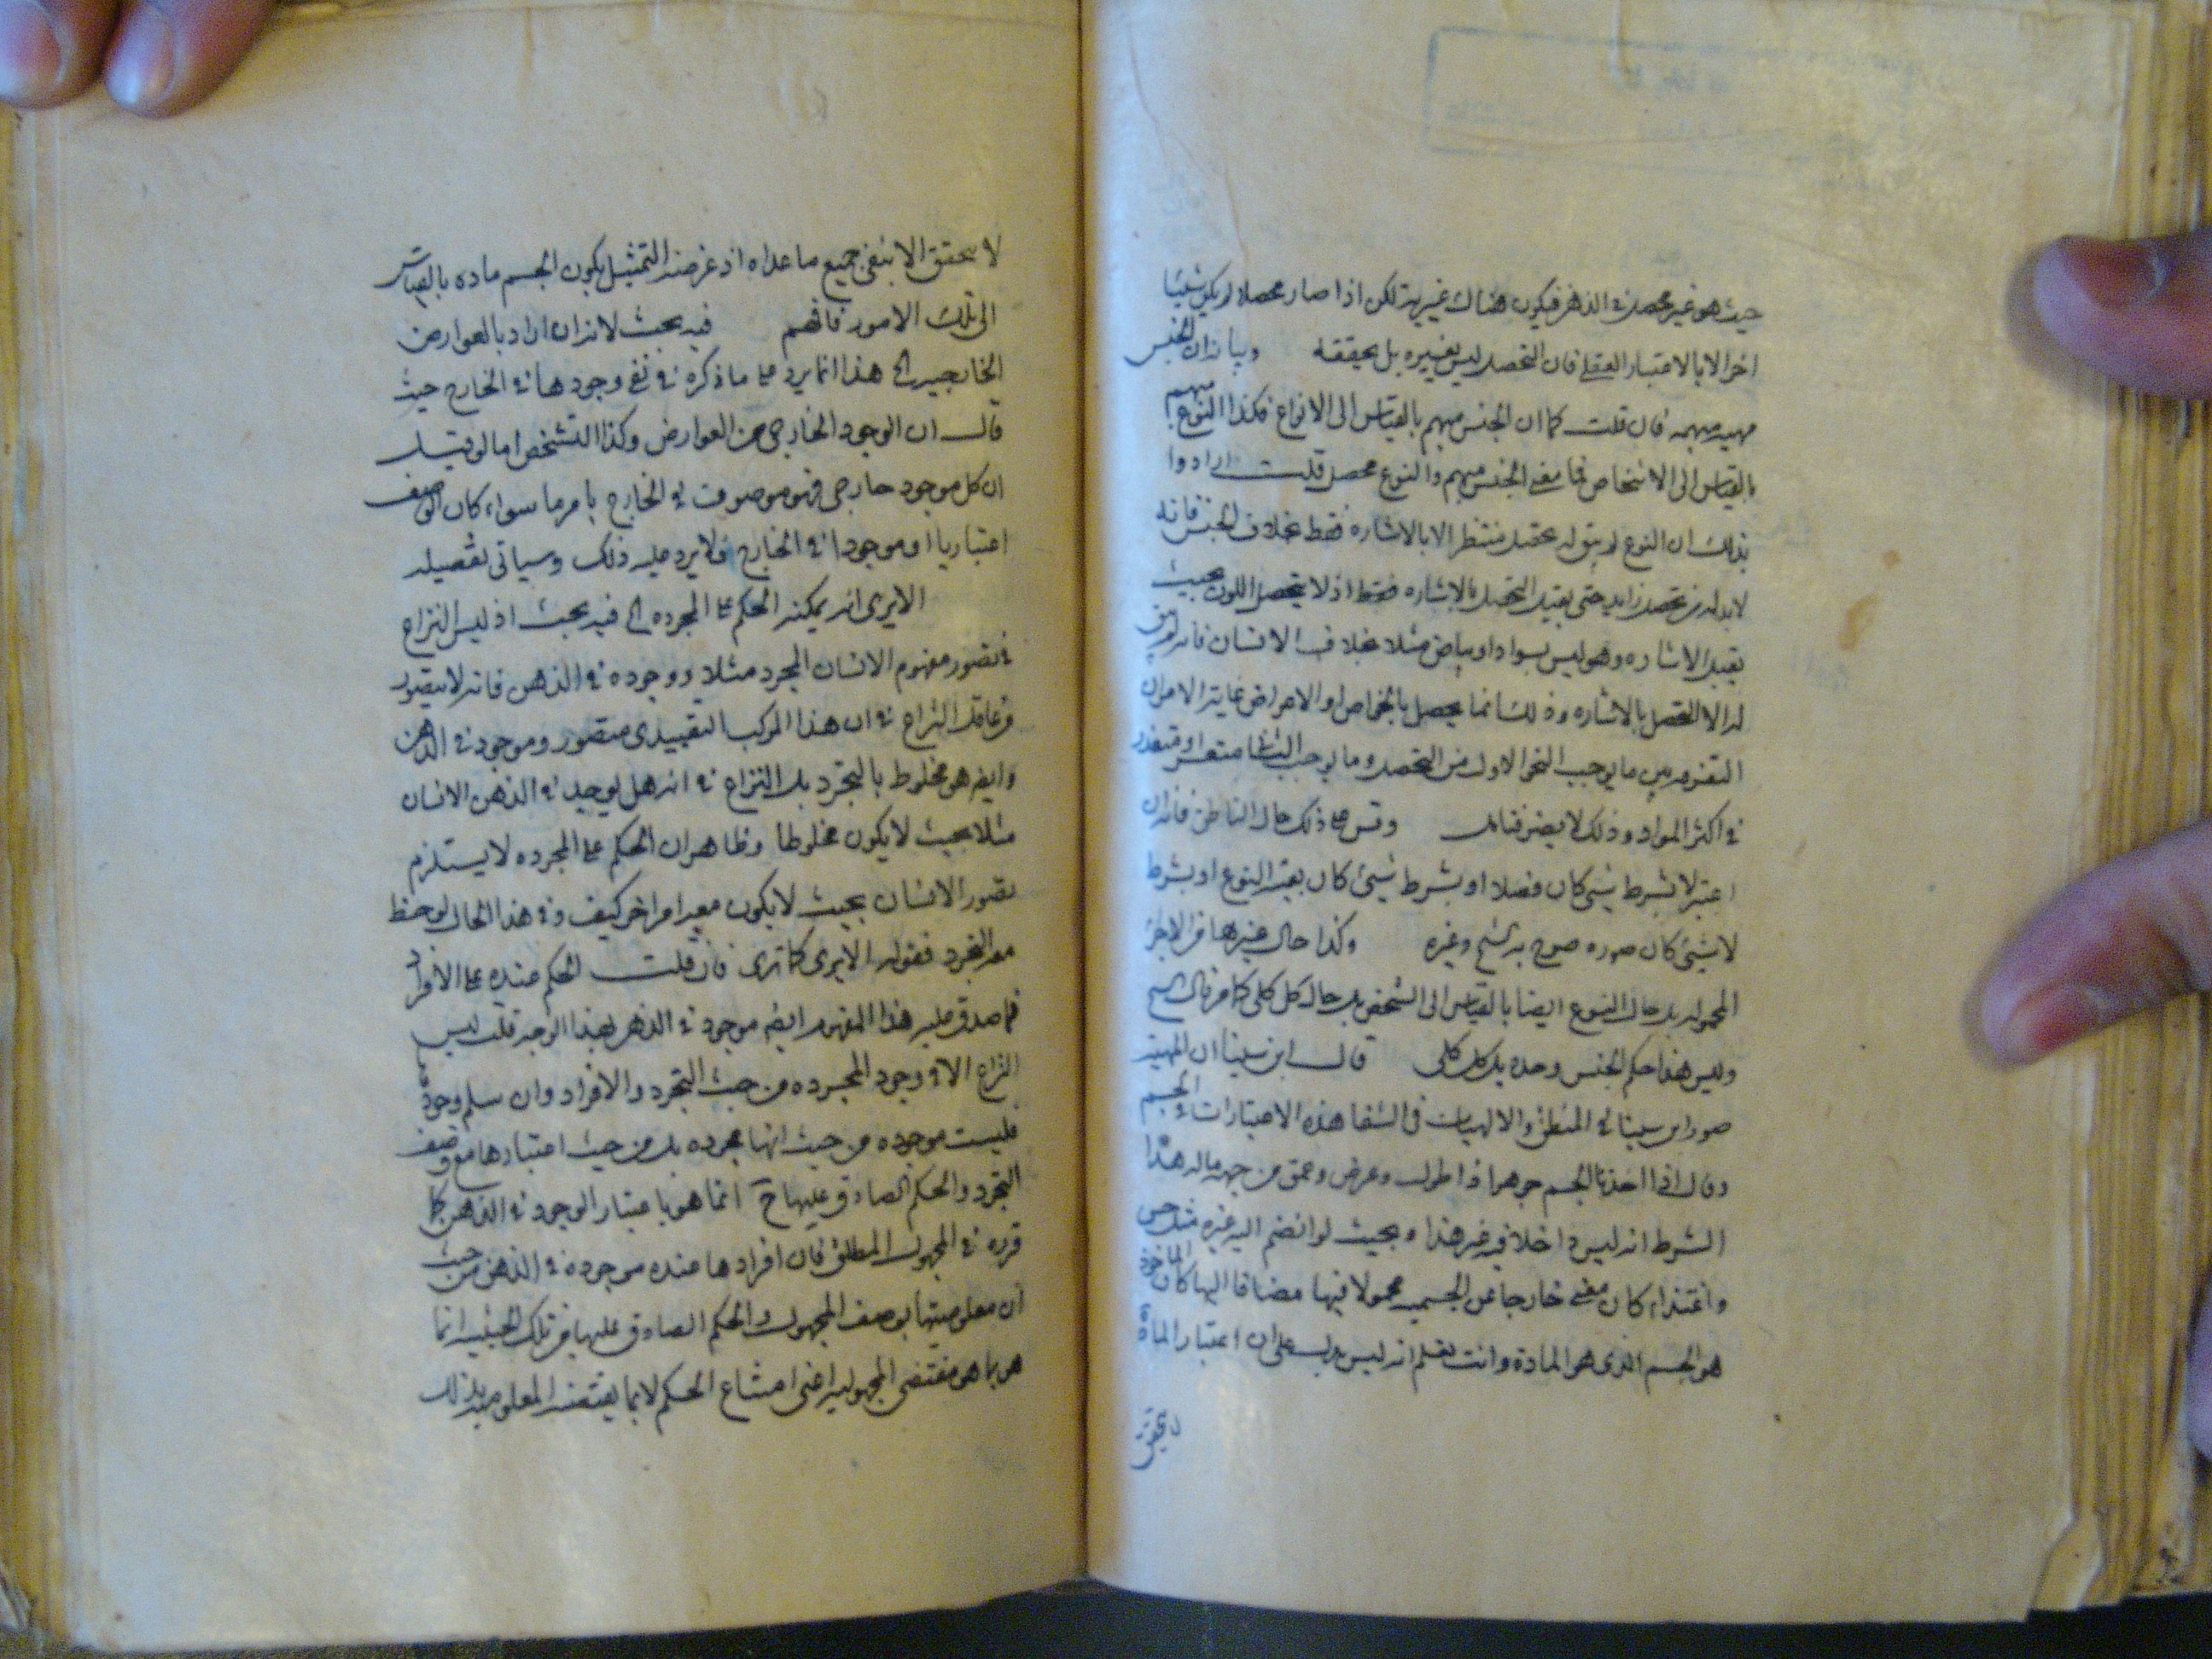 حيث هو غير محصل في الذهن فيكون هناك غيرية لكن اذا صار محصلا لم يكن شيئا
اخر الا بالاعتبار العقلي فان التحصيل ليس يغيره بل يحققه وبيانه ان الجنس
مهية مبهمة فان قلت كما ان الجنس مبهم بالقياس الى الانواع فكذا النوع مبهم
بالقياس الى الاشخاص فما معنى الجنس مبهم والنوع محصل قلت ارادوا
بذلك ان النوع لم يبق له تحصل منتظر الا بالاشاره فقط بخلاف الجنس فانه
لابد له من تحصل زايد حتى يقبل التحصل بالاشاره فقط اذ لا يتحصل اللون بحيث
يقبل الاشاره وهو ليس بسواد او بياض مثلا بخلاف الانسان فانه لم يبق
له الا التحصل بالاشاره وذلك انما يحصل بالخواص او الاعراض غاية الامر ان
التفرقه بين ما يوجب النحو الاول من التحصل وما يوجب الثاني متعسر او متعذر
في اكثر المواد وذلك لا يضر فتامل وقس على ذلك حال الناطق فانه ان
اعتبر لا بشرط شيئ كان فصلا او بشرط شيئ كان بعينه النوع او بشرط
لا شيئ كان صوره صرح به الشيخ وغيره وكذا حال غيرها من الاجزاء
المحموله بل حال النوع ايضا بالقياس الى الشخص بل حال كل كلي كما مر قال الشيخ
وليس هذا حكم الجنس وحده بل كل كلي قال ابن سينا ان المهية
صور ابن سينا في المنطق والالهيات في الشفا هذه الاعتبارات في الجسم
وقال اذا اخذنا الجسم جوهرا ذا طول وعرض وعمق من جهة ماله هذا
الشرط انه ليس داخلا فيه غير هذا وبحيث لو انضم اليه غيره مثل حس
واغتذاء كان معنى خارجا عن الجسمية محمولا فيها مضافا اليها كان الماخوذ
هو الجسم الذي هو المادة وانت تعلم انه ليس يدل على ان اعتبار المادة
لا يتحقق
لا يتحقق الا بنفي جميع ما عداه اذ غرضه التمثيل بكون الجسم ماده بالقياس
الى تلك الامور فافهم فيه بحث لانه ان اراد بالعوارض
الخارجية الخ هذا انما يرد على ما ذكره في نفي وجودها في الخارج حيث
قال ان الوجود الخارجي من العوارض وكذا التشخص اما لو قيل
ان كل موجود خارجي فهو موصوف في الخارج بامر ما سواء كان الوصف
اعتباريا او موجودا في الخارج فلا يرد عليه ذلك وسياتي تفصيله
الا يرى انه يمكنه الحكم على المجرده الخ فيه بحث اذ ليس النزاع
في تصور مفهوم الانسان المجرد مثلا ووجوده في الذهن فانه لا يتصور
من عاقل النزاع في ان هذا المركب التقييدي متصور وموجود في الذهن
وايضا هو مخلوط بالتجرد بل النزاع في انه هل يوجد في الذهن الانسان
مثلا بحيث لا يكون مخلوطا وظاهر ان الحكم على المجرده لا يستلزم
تصور الانسان بحيث لا يكون معه امر اخر كيف وفي هذا الحال لوحظ
معه التجرد فقوله الا يرى كما ترى فان قلت الحكم عنده على الافراد
فما صدق عليه هذا المفهوم ايضا موجود في الذهن بهذا الوجه قلت ليس
النزاع الا في وجود المجرده من حيث التجرد والافراد وان سلم وجوده
فليست موجوده من حيث انها مجرده بل من حيث اعتبارها مع وصف
التجرد والحكم الصادق عليها ح انما هو باعتبار الوجود في الذهن كما
قرره في المجهول المطلق فان افرادها عنده موجوده في الذهن من حيث
ان معلوميتها بوصف المجهول والحكم الصادق عليها من تلك الحيثية انما
هو بما هو مقتضى المجهولية اعني امتناع الحكم لا بما يقتضيه المعلومية بذلك